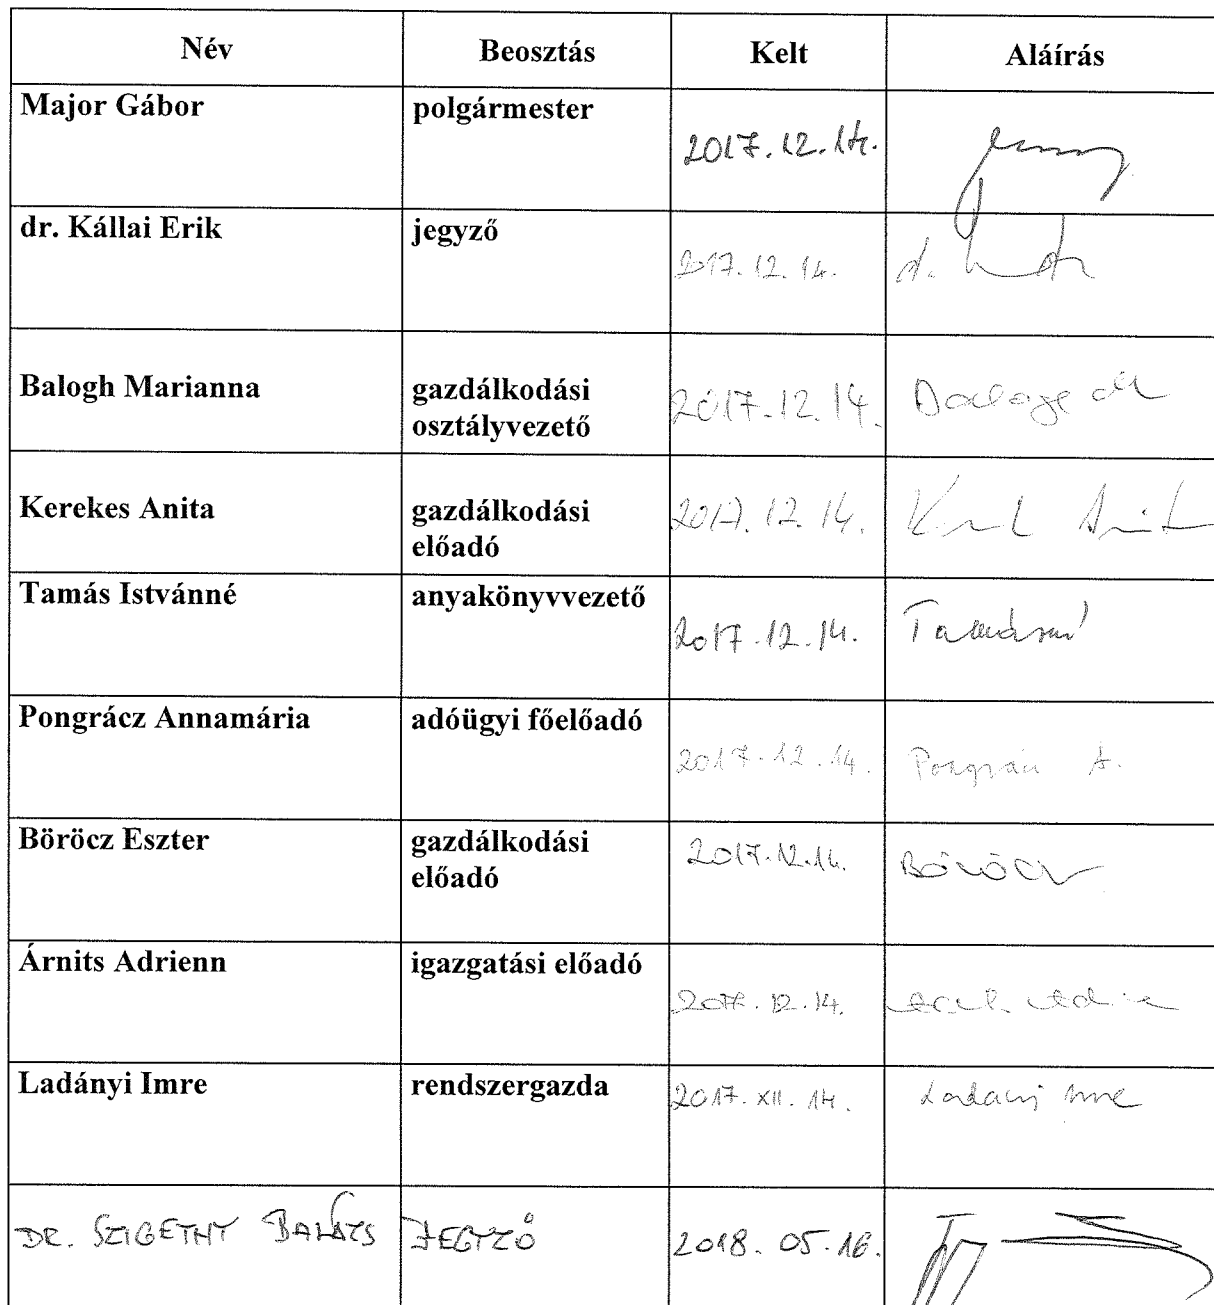 Név Beosztás Kelt Aláírás
Major Gábor polgármester
2017.12.14.
dr. Kállai Erik jegyző
2017.12.14.
Balogh Marianna gazdálkodási
osztályvezető
2017.12.14.
Kerekes Anita gazdálkodási
előadó
2017.12.14.
Tamás Istvánné anyakönyvvezető
2017.12.14. Tamásné
Pongrácz Annamária adóügyi főelőadó
2017.12.14. Pongrácz A.
Böröcz Eszter gazdálkodási
előadó
2017.12.14. Böröcz
Árnits Adrienn igazgatási előadó
2017.12.14.
Ladányi Imre rendszergazda
2017.XII.14. Ladányi Imre
DR. SZIGETHY BALÁZS JEGYZŐ 2018.05.16.